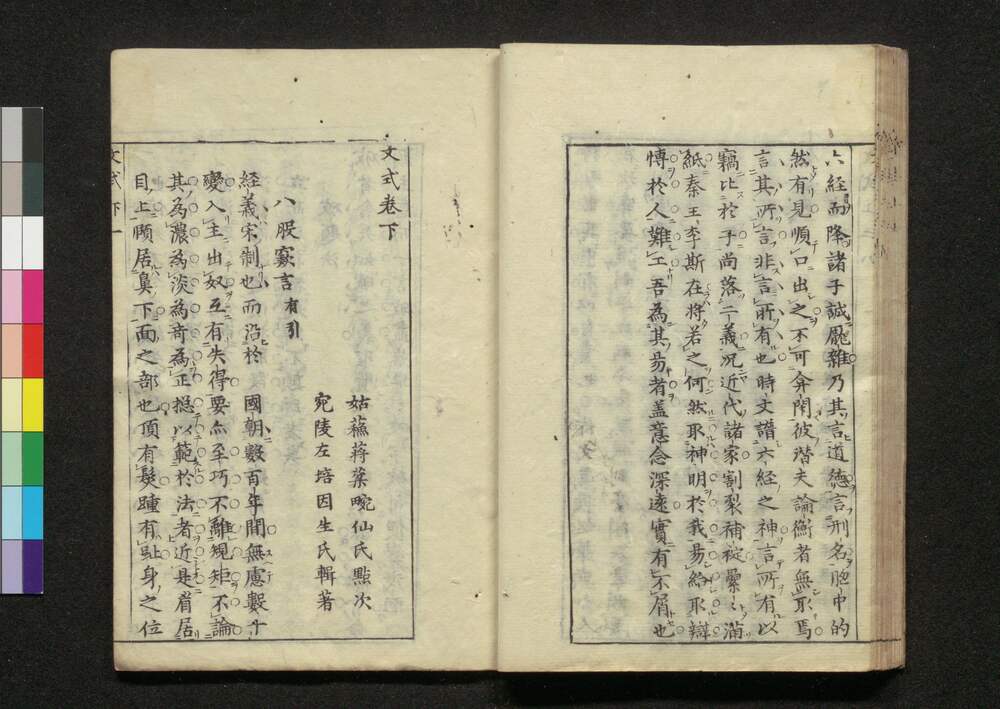 六経而降諸子誠厖雜乃其言道德言刑名胞中的
然有見順口出之不可弇閑彼潛夫論衡者無取焉
言其所言非言所有也時文譜六経之神言所有以
竊比於子尚落二義况近代諸家割裂補裰纍〻滿
紙秦王李斯在将若之何然取神明於我易給取辯
博於人難工吾為其易者盖意念深遠實有不屑也
文式卷下
八股家言有引
姑蘓蒋棻畹仙氏點次
宛陵左培因生氏輯著
経義宋制也而沿於 國朝數百年間無慮數千
變入主出奴互有失得要亦至巧不離規矩不論
其為濃為淡為竒為正揔以範於法者近是眉居
目上顄居鼻下面之部也頂有髮踵有趾身之位
文式 下 一